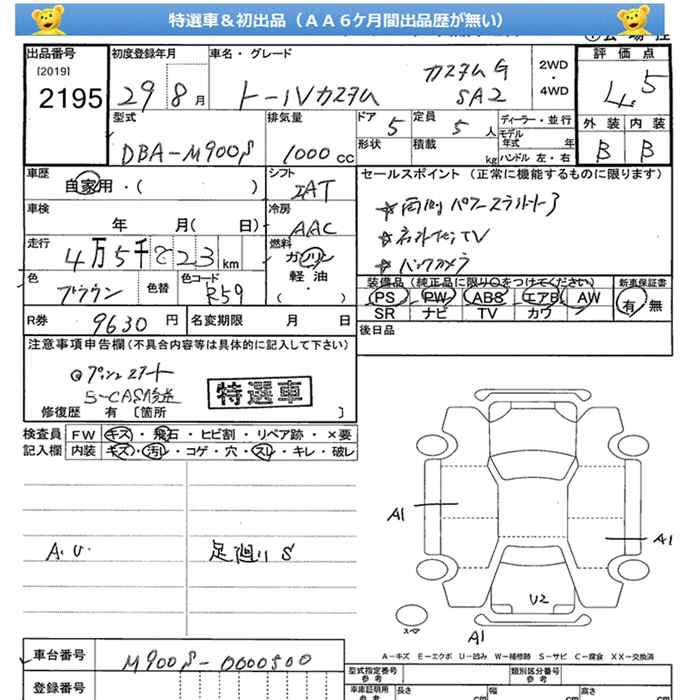 特選車＆初出品（ＡＡ６ケ月間出品歴が無い）
出品番号
[2019]
2195
初度登録年月
29 8 月
車名・グレード
カスタム G
トールカスタム SA2
2WD
・
4WD
評価点
4.5
外装 内装
B B
型式
DBA-M900S
排気量
1000 cc
ドア 5
形状
定員 5 人
積載 kg
ディーラー・並行
モデル年式 年
ハンドル 左・右
車歴
自家用・( )
シフト
IAT
セールスポイント（正常に機能するものに限ります）
☆両側パワースライドドア
TV
☆バックカメラ
車検
年 月( 日)
冷房
AAC
走行
4万5千 23 km
燃料
ガソリン
軽油
・( )
色
ブラウン
色替
色コード
R59
装備品（純正品に限り○をつけてください）
PS PW ABS エアB AW
SR ナビ TV カワ
新車保証書
有 無
R券 9630 円
名変期限 月 日
後日品
注意事項申告欄（不具合内容等は具体的に記入して下さい）
プッシュスタート
B-CAS
特選車
修復歴 有 〔箇所 〕
検査員 FW キズ・飛石・ヒビ割・リペア跡・×要
記入欄 内装 キズ・汚レ・コゲ・穴・スレ・キレ・破レ
A.U. 足廻りS
A1
A1
U2
スペア
A1
A－キズ E－エクボ U－凹み W－補修跡 S－サビ C－腐食 XX－交換済
車台番号 M900S-0000500
登録番号
型式指定番号
参考
類別区分番号
参考
車庫証明用
参考
長さ cm
幅 cm
高さ cm